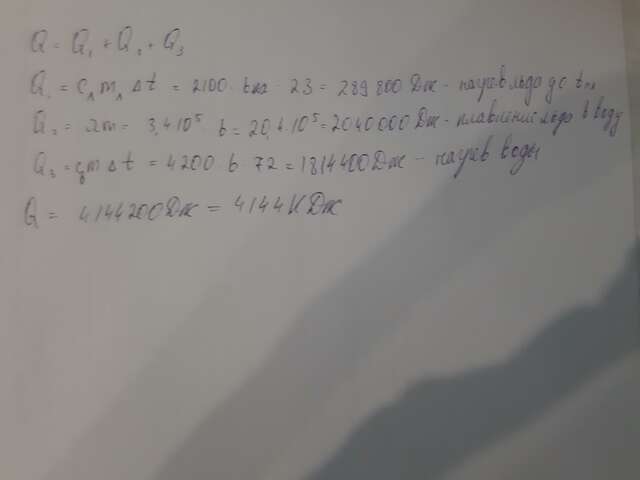 Q = Q₁ + Q₂ + Q₃
Q₁ = cлmлΔt = 2100 · 6кг · 23 = 289 800 Дж - нагрев льда до tпл
Q₂ = λm = 3,4·10⁵ · 6 = 20,4·10⁵ = 2040000 Дж - плавление льда в воду
Q₃ = cвmΔt = 4200 · 6 · 72 = 1814400 Дж - нагрев воды
Q = 4144200 Дж = 4144 КДж